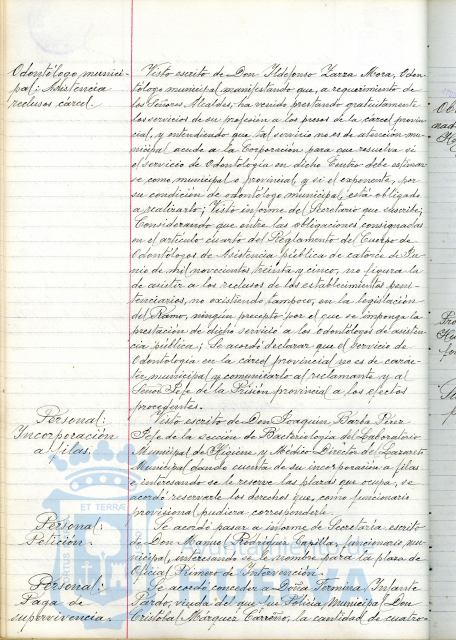 Odontólogo munici-
pal: Asistencia
reclusos carcel.
Visto escrito de Don Ildefonso Zarza Mora, Odon-
tólogo municipal manifestando que, a requerimiento de
los Señores Alcaldes, ha venido prestando gratuitamente
los servicios de su profesión a los presos de la carcel provin-
cial, y entendiendo que tal servicio no es de atención mu-
nicipal acude a la Corporación para que resuelva si
el servicio de Odontología en dicho Centro debe estimar-
se como municipal o provincial y si el exponente, por
su condición de odontólogo municipal, está obligado
a realizarlo; Visto informe del Secretario que suscribe;
Considerando que entre las obligaciones consignadas
en el artículo cuarto del Reglamento del Cuerpo de
Odontólogos de Asistencia pública de catorce de Ju-
nio de mil novecientos treinta y cinco, no figura la
de asistir a los reclusos de los establecimientos peni-
tenciarios, no existiendo tampoco, en la legislación
del Ramo, ningún precepto por el que se imponga la
prestación de dicho servicio a los odontólogos de asisten-
cia pública; Se acordó declarar que el servicio de
Odontología en la carcel provincial no es de carac-
ter municipal y comunicarlo al reclamante y al
Señor Jefe de la Prisión provincial a los efectos
procedentes.
Personal:
Incorporación
a filas.
Visto escrito de Don Joaquin Barba Pérez
Jefe de la sección de Bacteriología del Laboratorio
Municipal de Higiene y Médico Director del Lazareto
Municipal dando cuenta de su incorporación a filas
e interesando se le reserve las plazas que ocupa, se
acordó reservarle los derechos que, como funcionario
provisional pudiera corresponderle.
Personal:
Petición.
Se acordó pasar a informe de Secretaría escrito
de Don Manuel Rodriguez Capilla, funcionario mu-
nicipal, interesando se le nombre para la plaza de
Oficial Primero de Intervención.
Personal:
Paga de
supervivencia.
Se acordó conceder a Doña Fermina Infante
Pardo, viuda del que fué Policia Municipal Don
Cristobal Márquez Carreño, la cantidad de cuatro-
ET TERRÆ